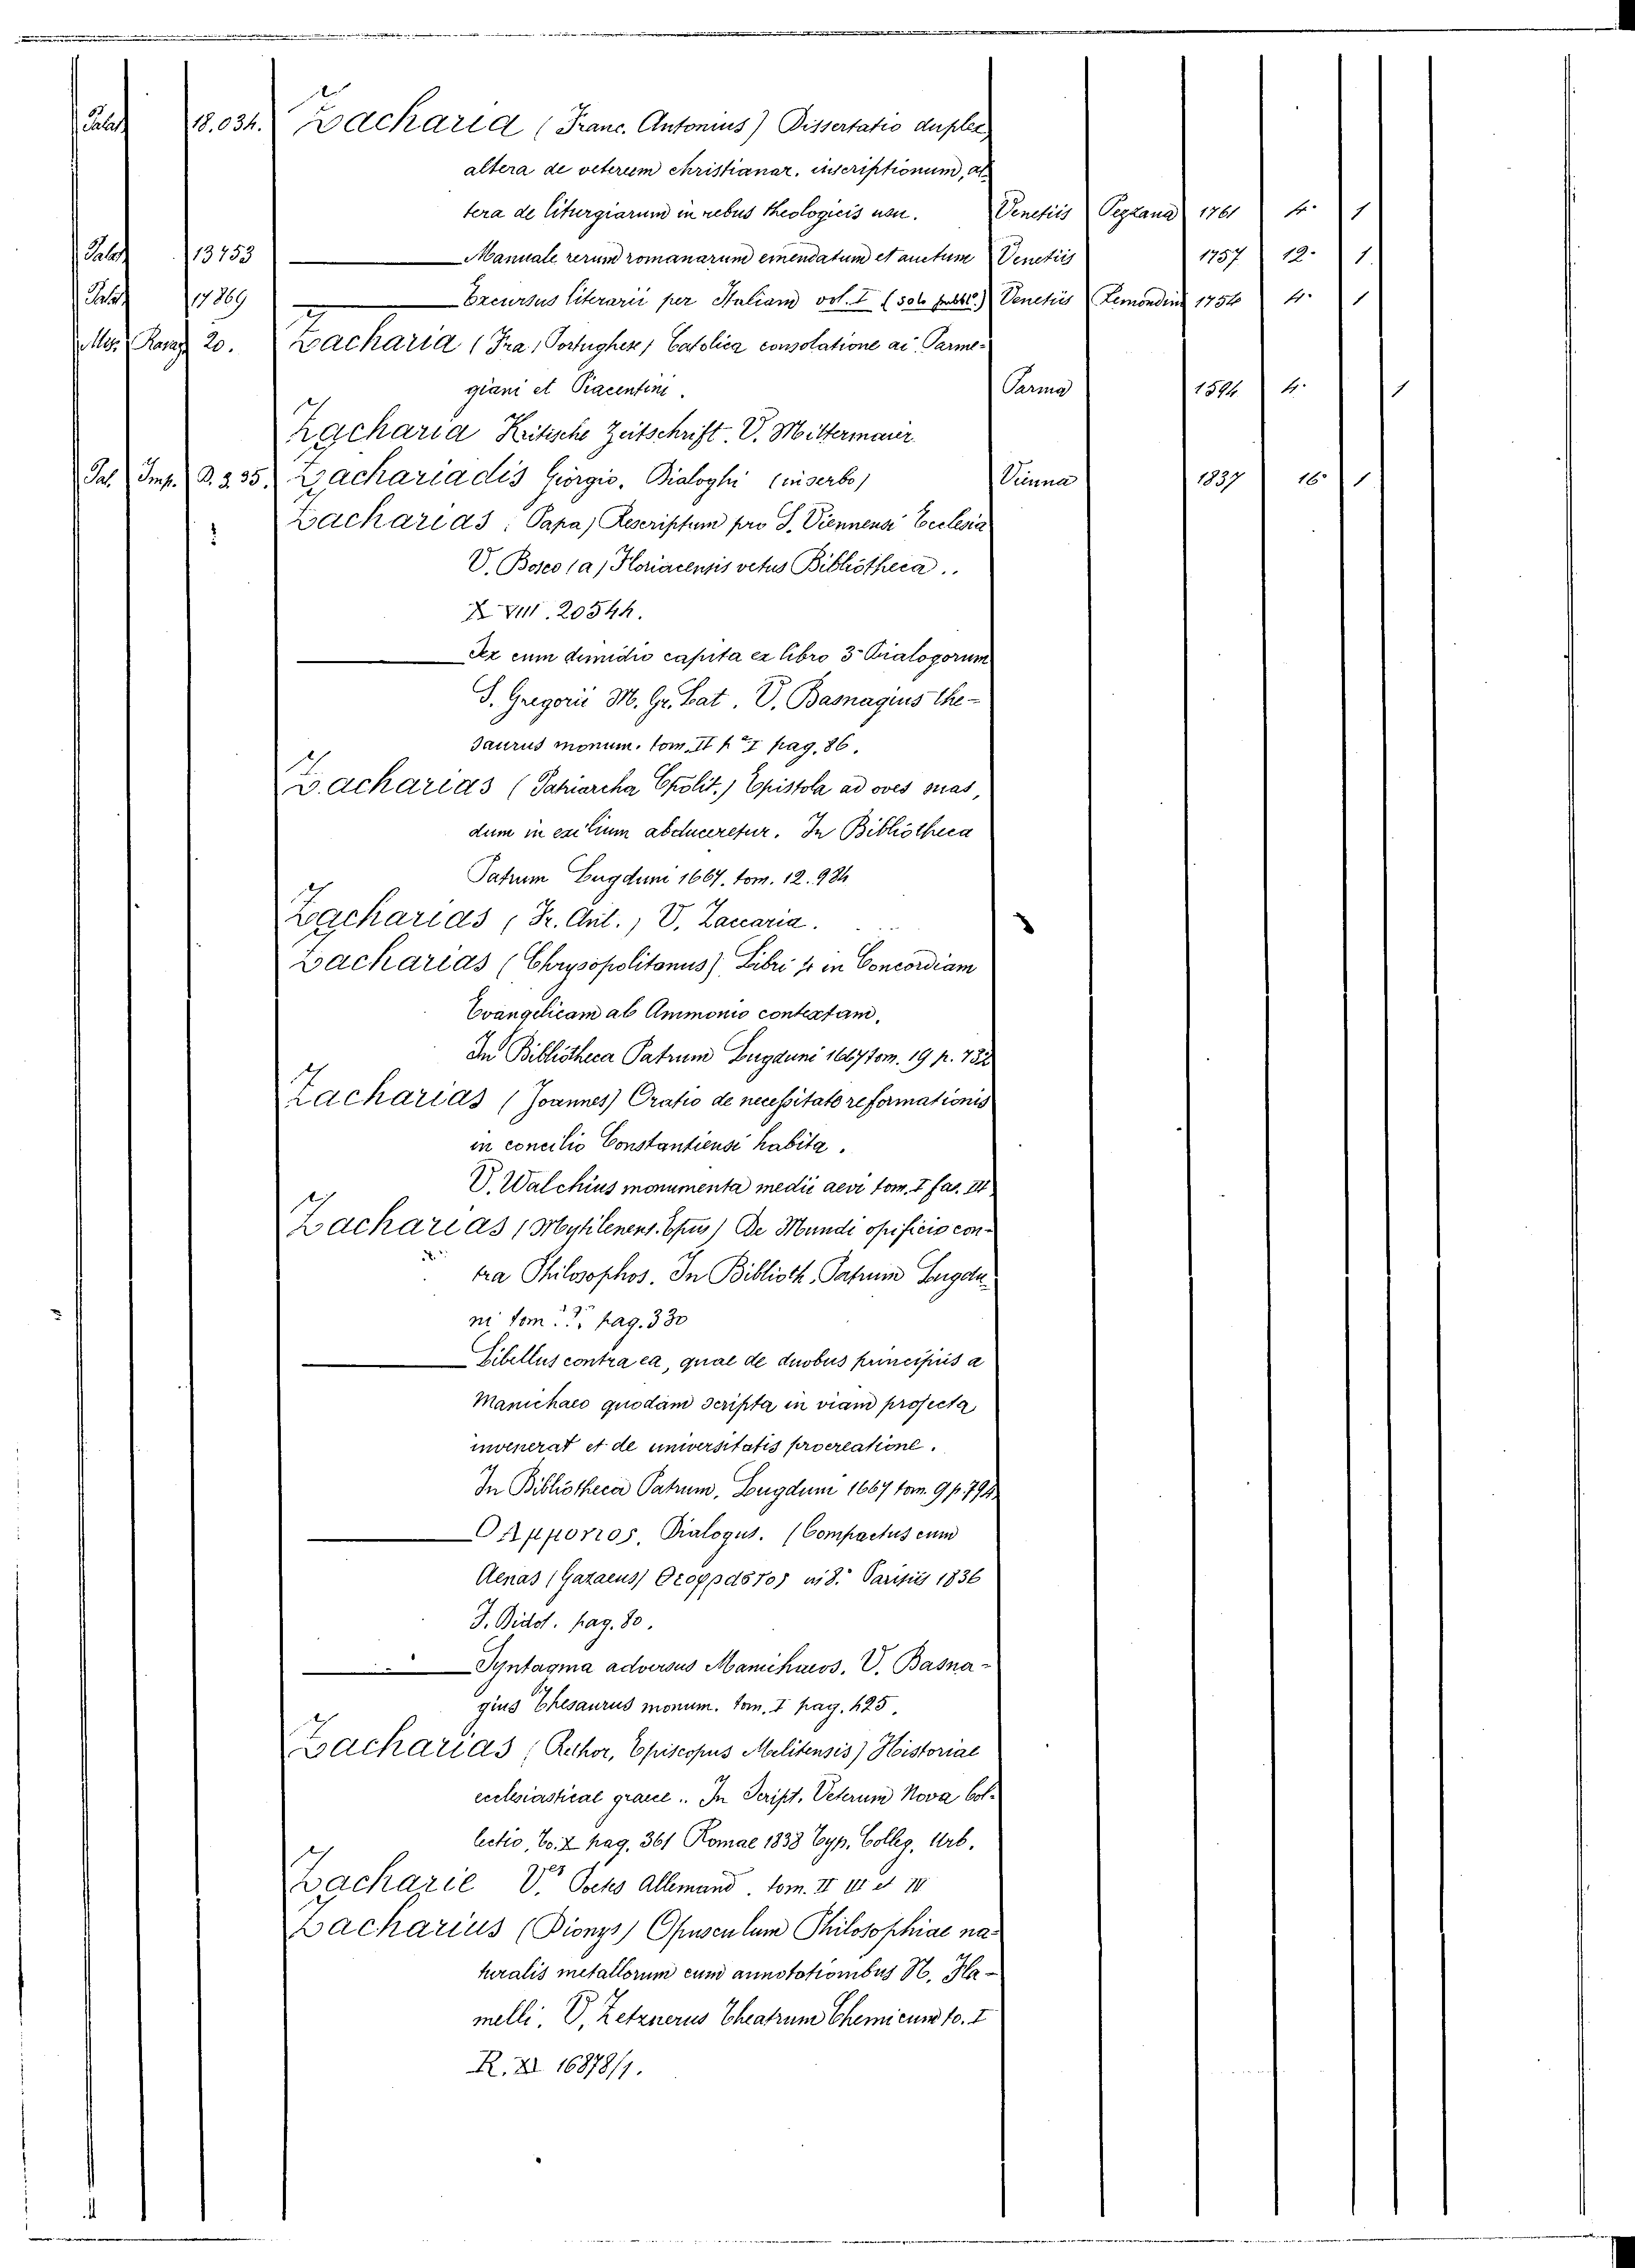 Palat 18.034. Zacharia (Franc. Antonius) Dissertatio duplex,
altera de veterum christianar. inscriptionum, al
tera de liturgiarum in rebus theologicis usu. Venetiis Pezzana 1761 4.° 1
Palat 13753 Manuale rerum romanarum emendatum et auctum Venetiis 1757 12.° 1.
Palat 17869 Excursus literarii per Italiam vol. I (solo pubbl.°) Venetiis Remondini 1754 4.° 1
Misc. 20. Zacharia (Fra, Portughese) Catolica consolatione ai Parme-
giani et Piacentini. Parma 1594 4.° 1
Zacharia Kritische Zeitschrift. V. Mittermaier
Pal. Imp. D. 3. 35. Zachariadis Giorgio, Dialoghi (in serbo) Vienna 1837 16.° 1
Zacharias (Papa) Rescriptum pro S. Viennensi Ecclesia
V. Bosco (a) Floriacensis vetus Bibliotheca..
X VIII. 20544.
Sex cum dimidio capita ex libro 3.° Dialogorum
S. Gregorii M. Gr. Lat. V. Basnagius the-
saurus monum. tom. II p.ª I pag. 86.
Zacharias (Patriarcha Cpolit.) Epistola ad oves suas,
dum in exilium abduceretur. In Bibliotheca
Patrum Lugduni 1667. tom. 12. 984
Zacharias (Fr. Ant.) V. Zaccaria.
Zacharias (Chrysopolitanus) Libri 4 in Concordiam
Evangelicam ab Ammonio contextam.
In Bibliotheca Patrum Lugduni 1667 tom. 19 p. 732
Zacharias (Joannes) Oratio de necessitate reformationis
in concilio Constantiensi habita.
V. Walchius monumenta medii aevi tom. I fas. III
Zacharias (Mytilenens. Epus) De Mundi opificio con-
tra Philosophos. In Biblioth. Patrum Lugdu-
ni tom. pag. 330
Libellus contra ea, quae de duobus principiis a
Manichaeo quodam scripta in viam projecta
invenerat et de universitatis procreatione.
In Bibliotheca Patrum, Lugduni 1667 tom. 9 p. 794
Dialogus. (Compactus cum
Aenas (Gazaeus) in 8.° Parisiis 1836
J. Didot. pag. 80.
Syntagma adversus Manichaeos. V. Basna-
gius Thesaurus monum. tom. I pag. 425.
Zacharias (Rethor, Episcopus Melitensis) Historiae
ecclesiasticae graece.. In Script. Veterum Nova Col-
lectio, To. X pag. 361 Romae 1838 Typ. Colleg. Urb.
Zacharie V.ez Poetes Allemand. tom. II III et IV
Zacharius (Dionys) Opusculum Philosophiae na-
turalis metallorum cum annotationibus N. Fla-
melli. V. Zetznerus Theatrum Chemicum to. I
R. XI 16878/1.